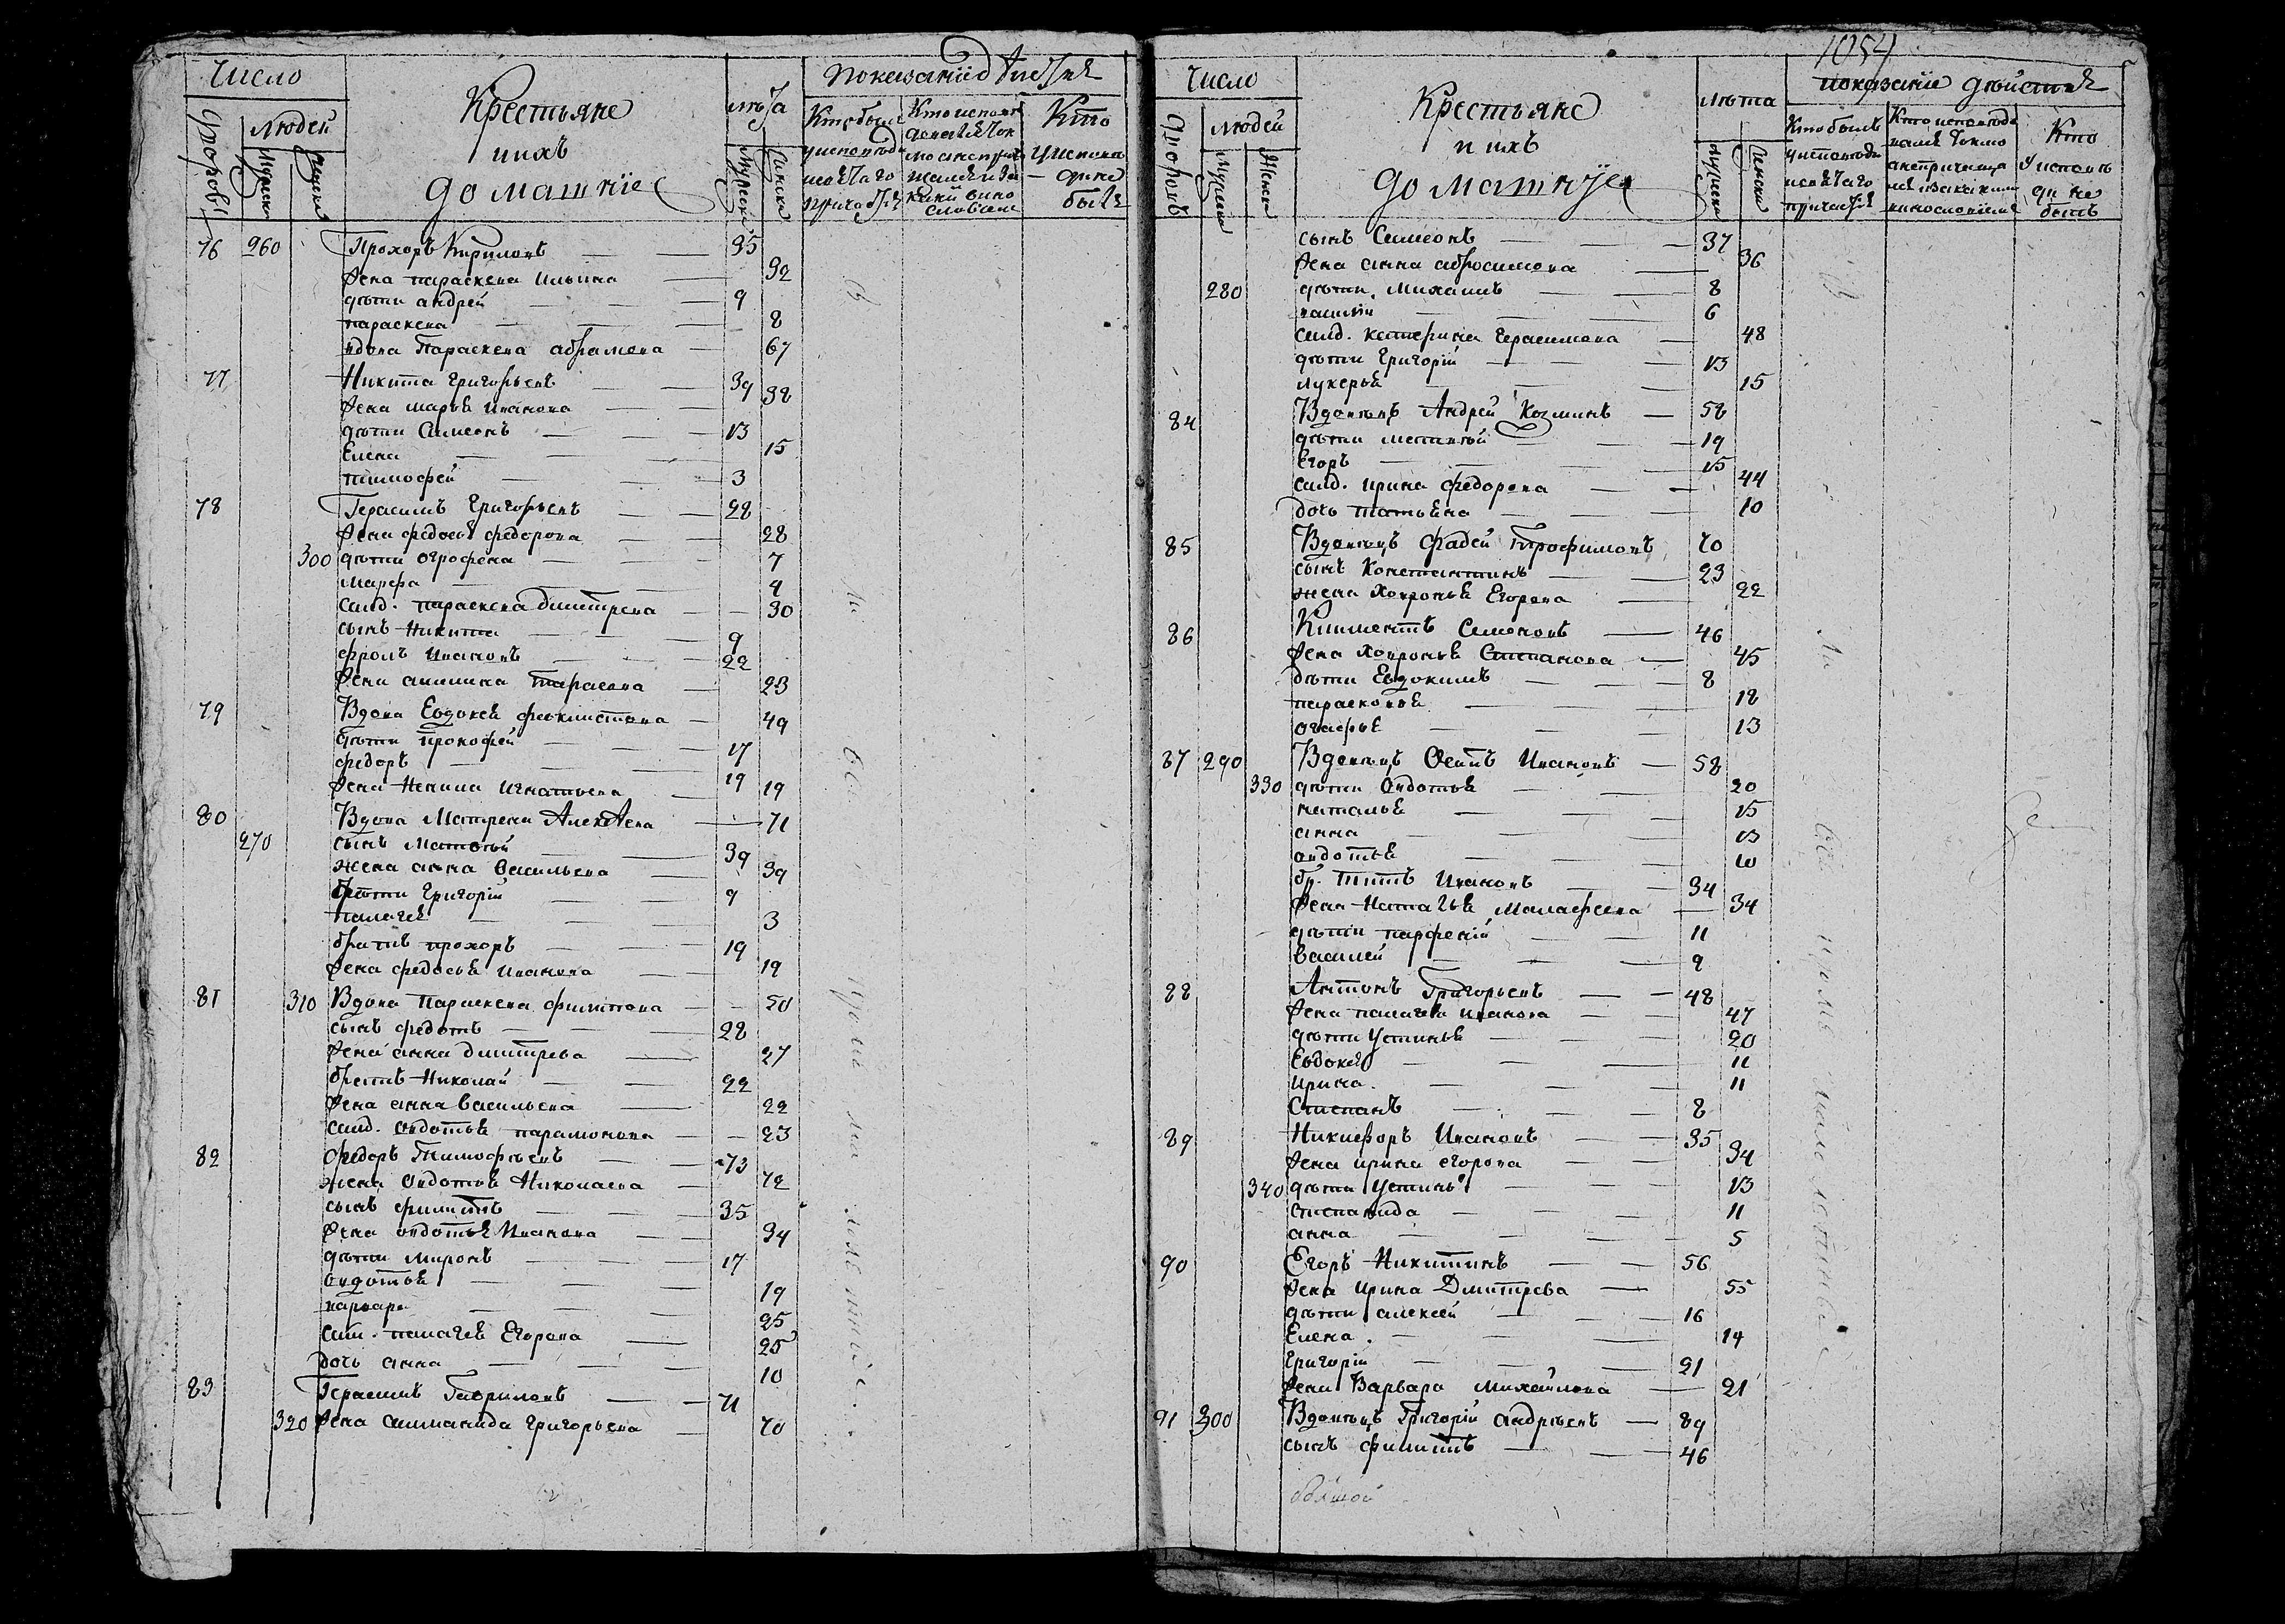 Число
Крестьяне
ихъ
домашніе
лѣта
показаніе дѣйствія
дворовъ
людей
мужеска
женска
мужеска
женска
Кто былъ
Кто
76 260 Прохоръ Кириловъ 35
Жена параскева Ильина 32
дѣти андрей 9
параскева 8
вдова Параскева абрамова 67
77 Никита Григорьевъ 39
Жена марья иванова 38
дѣти Симеонъ 13
Елена 15
тимофей 3
78 Герасимъ Григорьевъ 28
Жена федосья федорова 28
300 дѣти огрофена 7
Марфа 4
солд. параскева дмитрева 30
сынъ Никита 9
фролъ Ивановъ 22
Жена акилина тарасова 23
79 Вдова Евдокея феоктистова 49
дѣти Прокофей 17
федоръ 19
Жена Ненила игнатьева 19
80 Вдова Матрена Алекѣева 71
270 сынъ Матвей 39
жена анна Васильева 39
дѣти Григорій 9
палагея 3
братъ прохоръ 19
Жена федосья Иванова 19
81 310 Вдова Параскева филипова 50
сынъ федотъ 28
Жена анна дмитрева 27
братъ Николай 22
Жена анна васильева 22
солд. овдотья парамонова 23
82 федоръ Тимофѣевъ 73
жена овдотья Николаева 72
сынъ филиппъ 35
Жена овдотья Иванова 34
дѣти миронъ 17
овдотья 19
варвара 25
солд. палагея Егорова 25
дочь анна 10
83 Герасимъ Гавриловъ 71
320 Жена алимпіада григорьева 70
1054
Число
Крестьяне
и ихъ
домашнѣе
Лѣта
показаніе дѣйствія
дворовъ
людей
мужеска
женска
мужеска
женска
Кто былъ
у исповеди
и святаго
причастія
Кто
у исповѣ
ди не
былъ
сынъ Симеонъ 37
Жена анна абросимова 36
280 дѣти Михаилъ 8
василій 6
солд. катерина Герасимова 48
дѣти Григорій 13
лукерья 15
84 Вдовецъ Андрей Козминъ 58
дѣти матвей 19
Егоръ 15
солд. ирина федорова 44
дочь татьяна 10
85 Вдовецъ фадей Трофимовъ 70
сынъ Константинъ 23
жена Хавронья Егорова 22
86 Климентъ Семеновъ 46
Жена Хавронья Степанова 45
дѣти Евдокимъ 8
парасковья 18
огафья 13
87 290 Вдовецъ Осипъ Ивановъ 58
330 дѣти Овдотья 20
наталья 15
анна 13
овдотья 10
бр. титъ Ивановъ 34
Жена Наталья Малафеева 34
дѣти парфеній 11
василей 9
88 Антонъ Григорьевъ 48
Жена палагея иванова 47
дѣти устинья 20
Евдокея 11
ирина 11
Степанъ 8
89 Никифоръ Ивановъ 35
Жена ирина егорова 34
340 дѣти устинья 13
степанида 11
анна 5
90 Егоръ Никитинъ 56
Жена ирина Дмитрева 55
дѣти алексей 16
Елена 14
григорій 21
Жена Варвара михайлова 21
91 300 Вдовецъ Григорій андрѣевъ 89
сынъ филиппъ 46